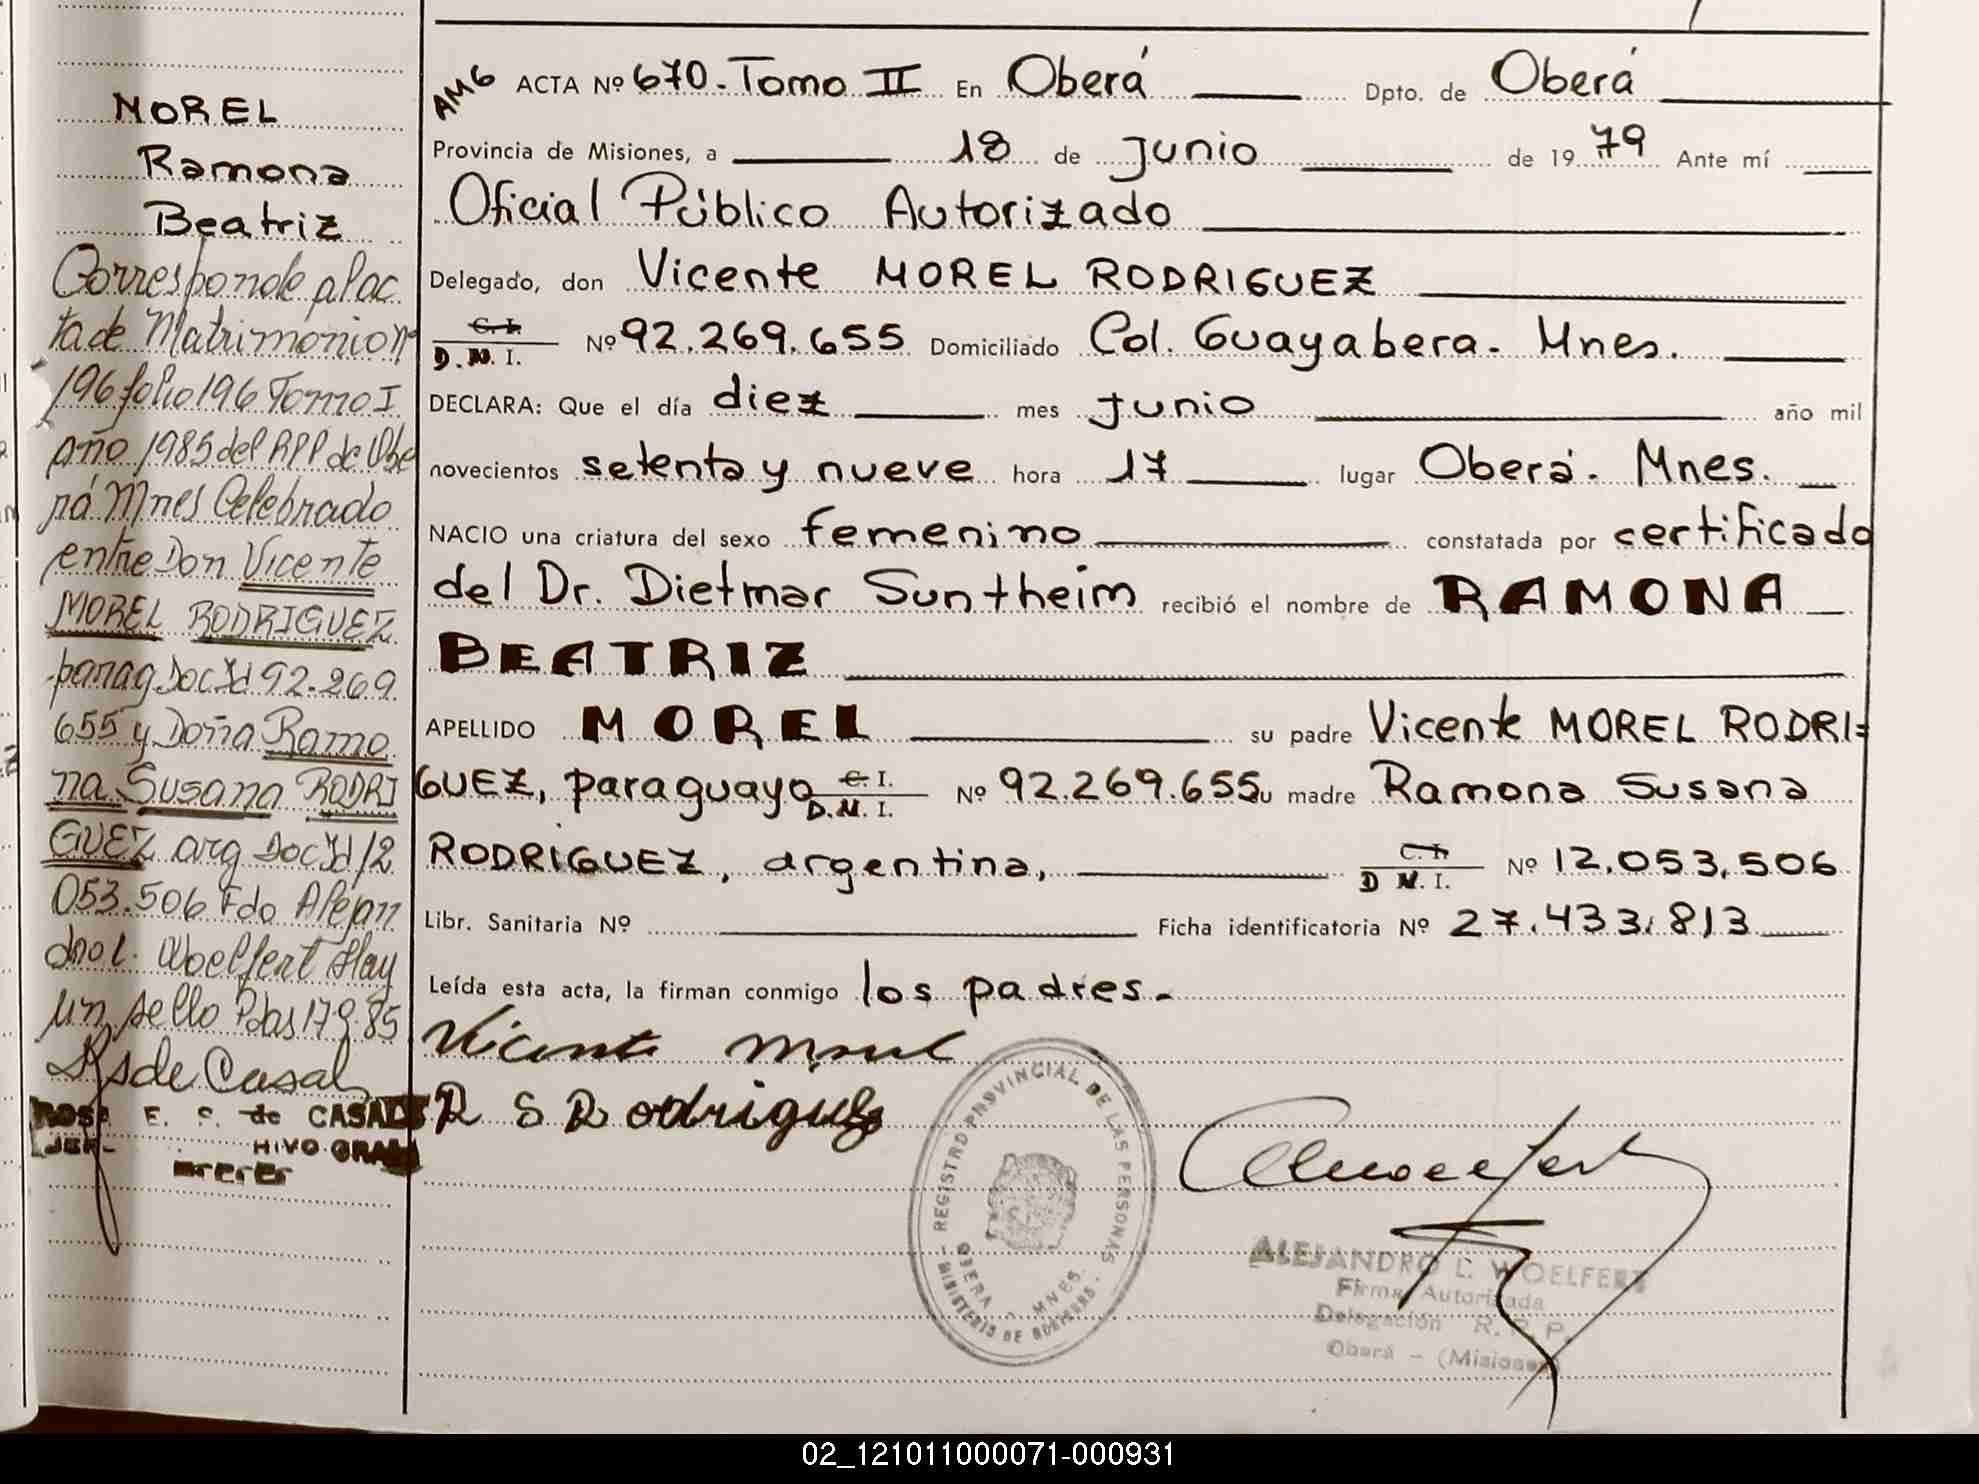 MOREL
Ramona
Beatriz
Corresponde al ac
ta de Matrimonio nº
196 folio 196 Tomo I
año 1985 del RPP de Obe
rá Mnes Celebrado
entre Don Vicente
MOREL RODRIGUEZ
parag Doc Id 92.269
655 y Doña Ramo
na Susana RODRI
GUEZ arg Doc Id 12
053.506 Fdo Alejan
dro L. Woelfert Hay
un sello Pdas 17.9.85
ROSA E. S. de CASALS
AM6 ACTA Nº 670. Tomo II En Oberá Dpto. de Oberá
Provincia de Misiones, a 18 de junio de 1979 Ante mí
Oficial Público Autorizado
Delegado, don Vicente MOREL RODRIGUEZ
C.I.
D.N.I. Nº 92.269.655 Domiciliado Col. Guayabera. Mnes.
DECLARA: Que el día diez mes junio año mil
novecientos setenta y nueve hora 17 lugar Oberá. Mnes.
NACIO una criatura del sexo femenino constatada por certificado
del Dr. Dietmar Suntheim recibió el nombre de RAMONA
BEATRIZ
APELLIDO MOREL su padre Vicente MOREL RODRI=
GUEZ, paraguayo C.I. D.N.I. Nº 92.269.655 su madre Ramona Susana
RODRIGUEZ, argentina, C.I. D N.I. Nº 12.053.506
Libr. Sanitaria Nº Ficha identificatoria Nº 27.433.813
Leída esta acta, la firman conmigo los padres.-
Vicente Morel
R S Rodriguez
REGISTRO PROVINCIAL DE LAS PERSONAS
OBERA - MNES.
MINISTERIO DE GOBIERNO
ALEJANDRO L. WOELFERT
Firma Autorizada
Delegación R. P. P.
Oberá - (Misiones)
02_121011000071-000931